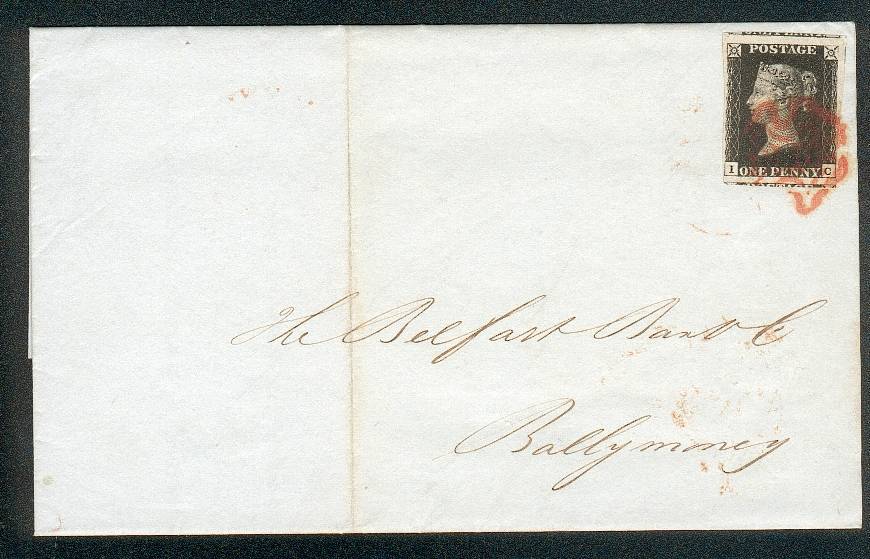 POSTAGE
I ONE PENNY C
The Belfast Bank Co
Ballymoney